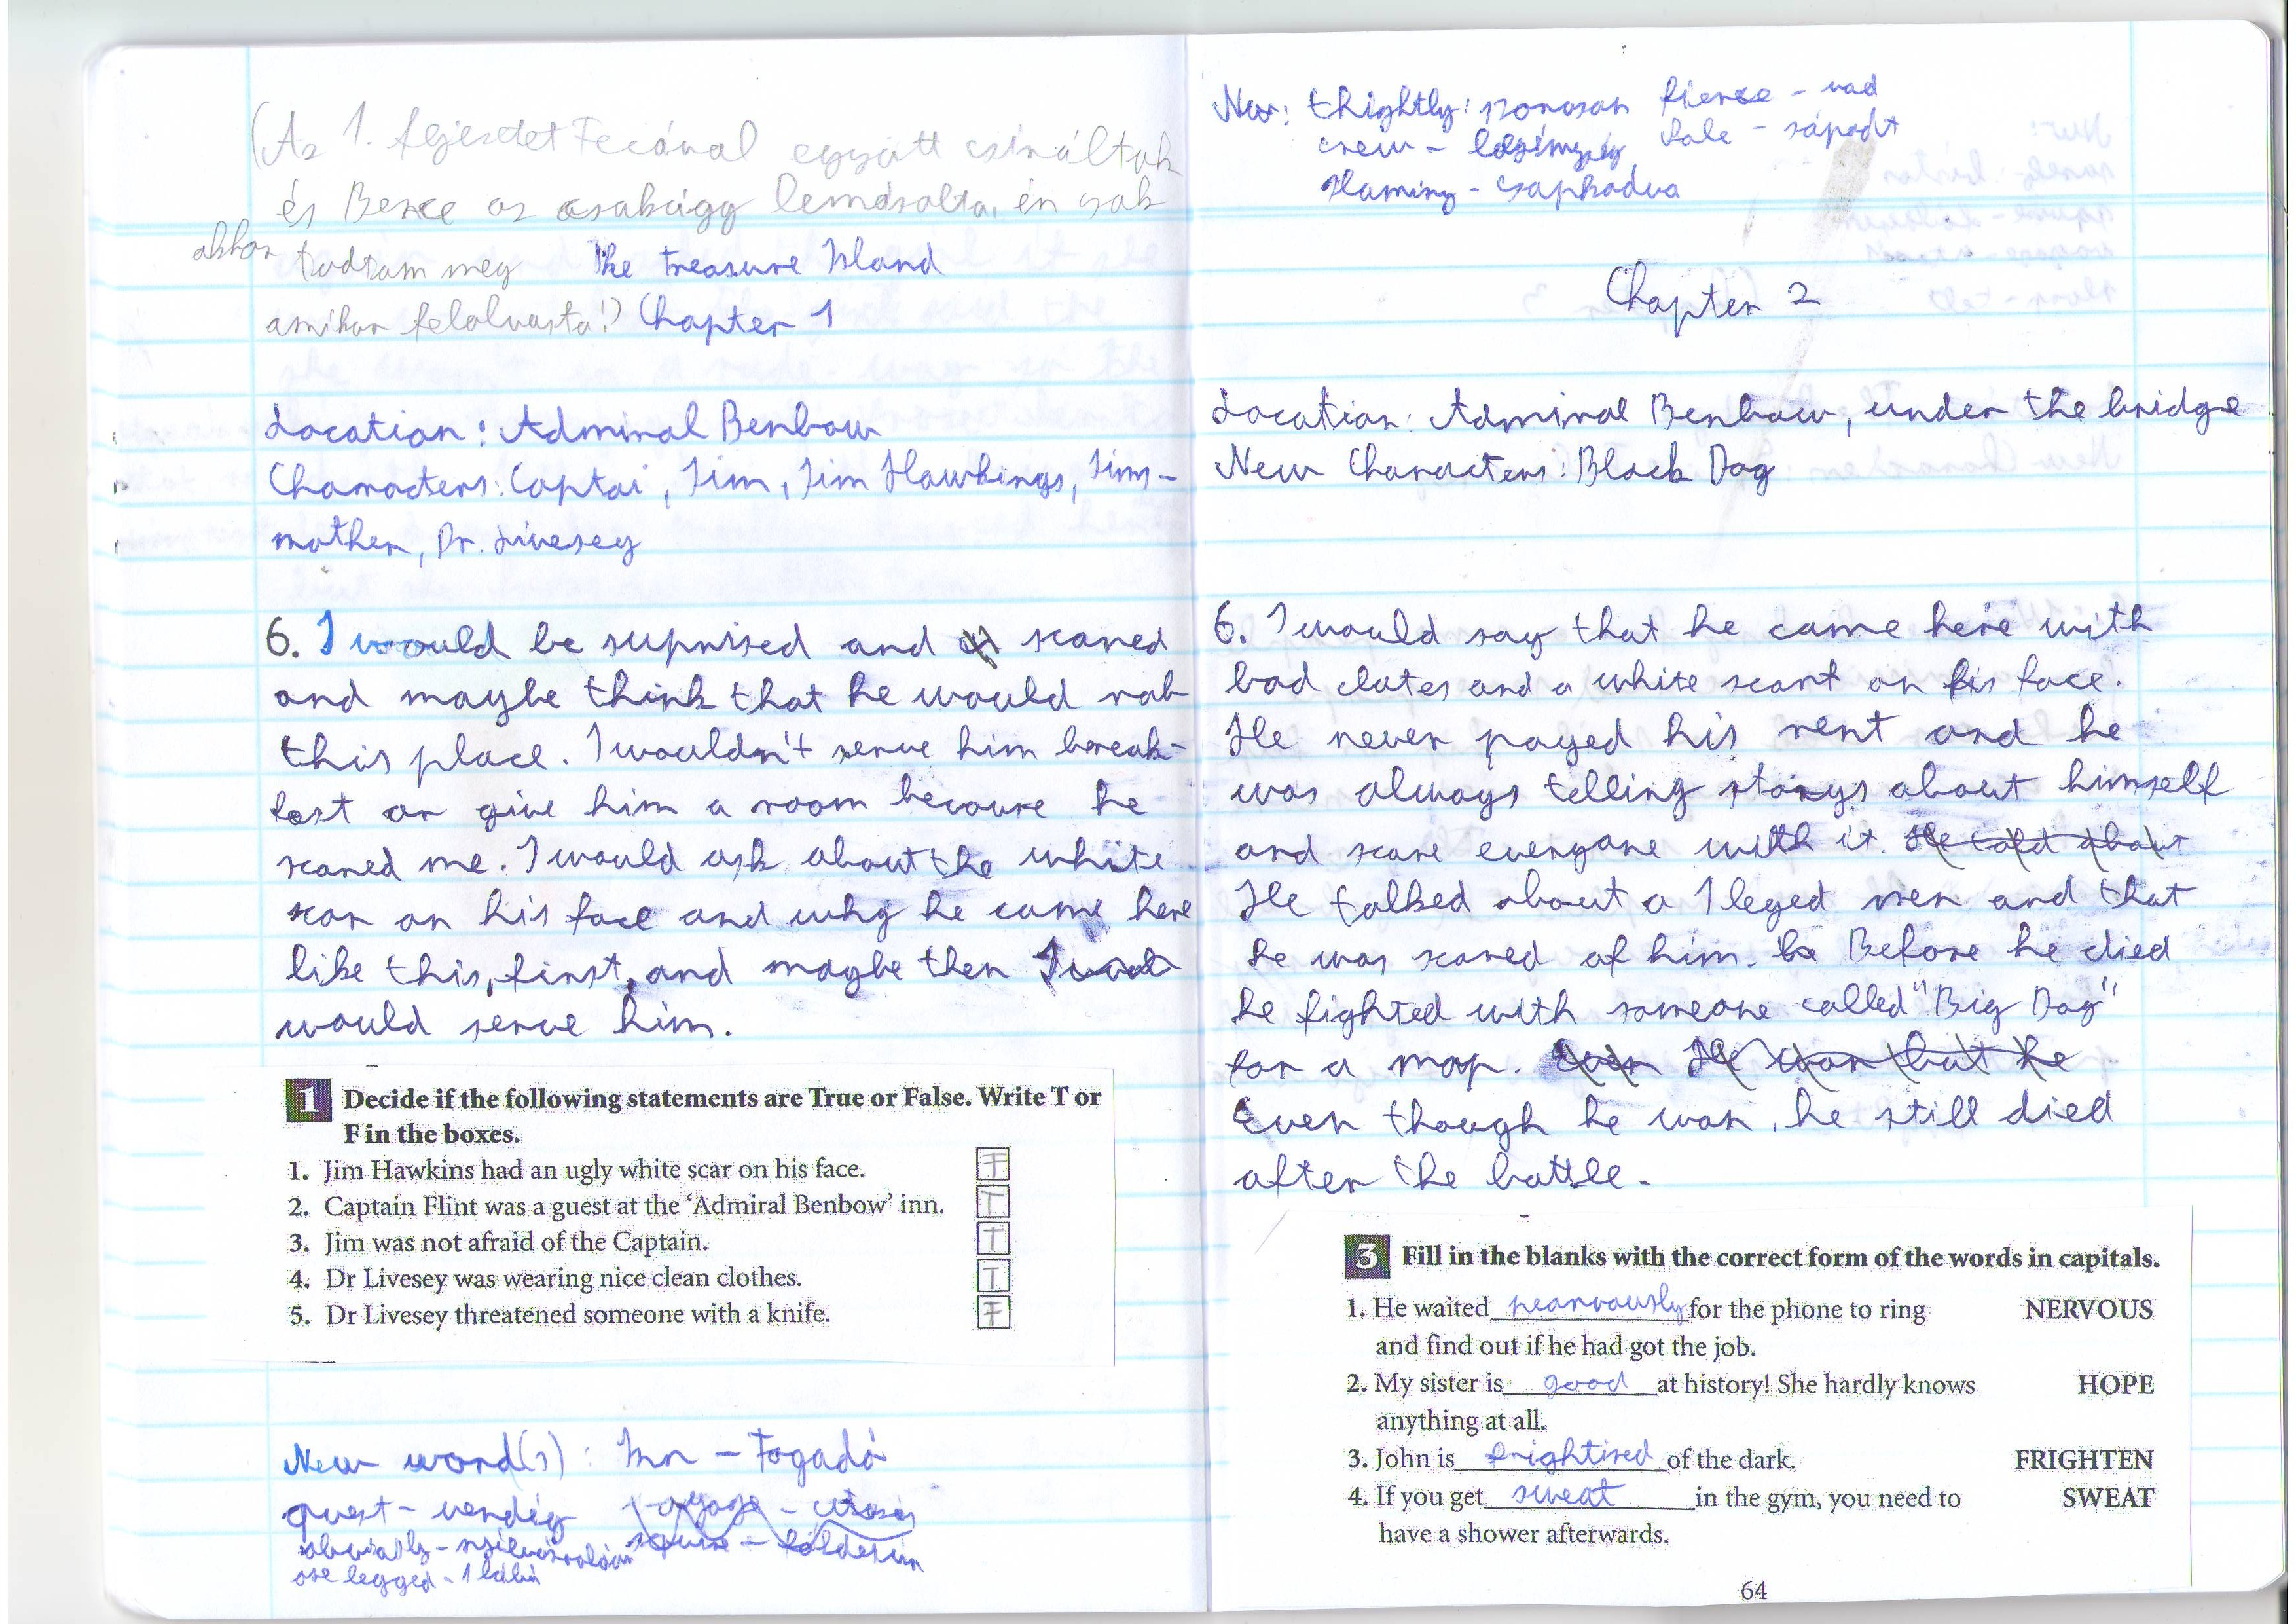 (Az 1. fejezetet Fecóval együtt csináltuk
és Bence az csakúgy lemásolta, én csak
akkor tudtam meg
The treasure Island
amikor felolvasta!) Chapter 1
Location: Admiral Benbow
Characters: Captai, Jim, Jim Hawkings, Jims-
mother, Dr. Livesey
6. I would be suprised and scared
and maybe think that he would rob
this place. I wouldn't serve him break-
fast or give him a room becouse he
scared me. I would ask about the white
scar on his face and why he came here
like this, first, and maybe then I
would serve him.
1 Decide if the following statements are True or False. Write T or
F in the boxes.
1. Jim Hawkins had an ugly white scar on his face. F
2. Captain Flint was a guest at the ‘Admiral Benbow’ inn. T
3. Jim was not afraid of the Captain. T
4. Dr Livesey was wearing nice clean clothes. T
5. Dr Livesey threatened someone with a knife. F
New word(s): Inn - Fogadó
quest - vendég voyage - utazás
obviously - nyilvánvalóan squire - földesúr
one legged - 1 lábú
New: thightly: szorosan fierce - vad
crew - legénység Pale - sápadt
slaming - csapkodva
Chapter 2
Location: Admiral Benbow, under the bridge
New Characters: Black Dog
6. I would say that he came here with
bad clotes and a white scart on his face.
He never payed his rent and he
was always telling storys about himself
and scare everyone with it. He told about
He talked about a 1 leged men and that
he was scared of him. be Before he died
he fighted with someone called "Big Dog"
for a map. Even He won but he
Even though he won, he still died
after the battle.
3 Fill in the blanks with the correct form of the words in capitals.
1. He waited nearvously for the phone to ring NERVOUS
and find out if he had got the job.
2. My sister is good at history! She hardly knows HOPE
anything at all.
3. John is frightired of the dark. FRIGHTEN
4. If you get sweat in the gym, you need to SWEAT
have a shower afterwards.
64